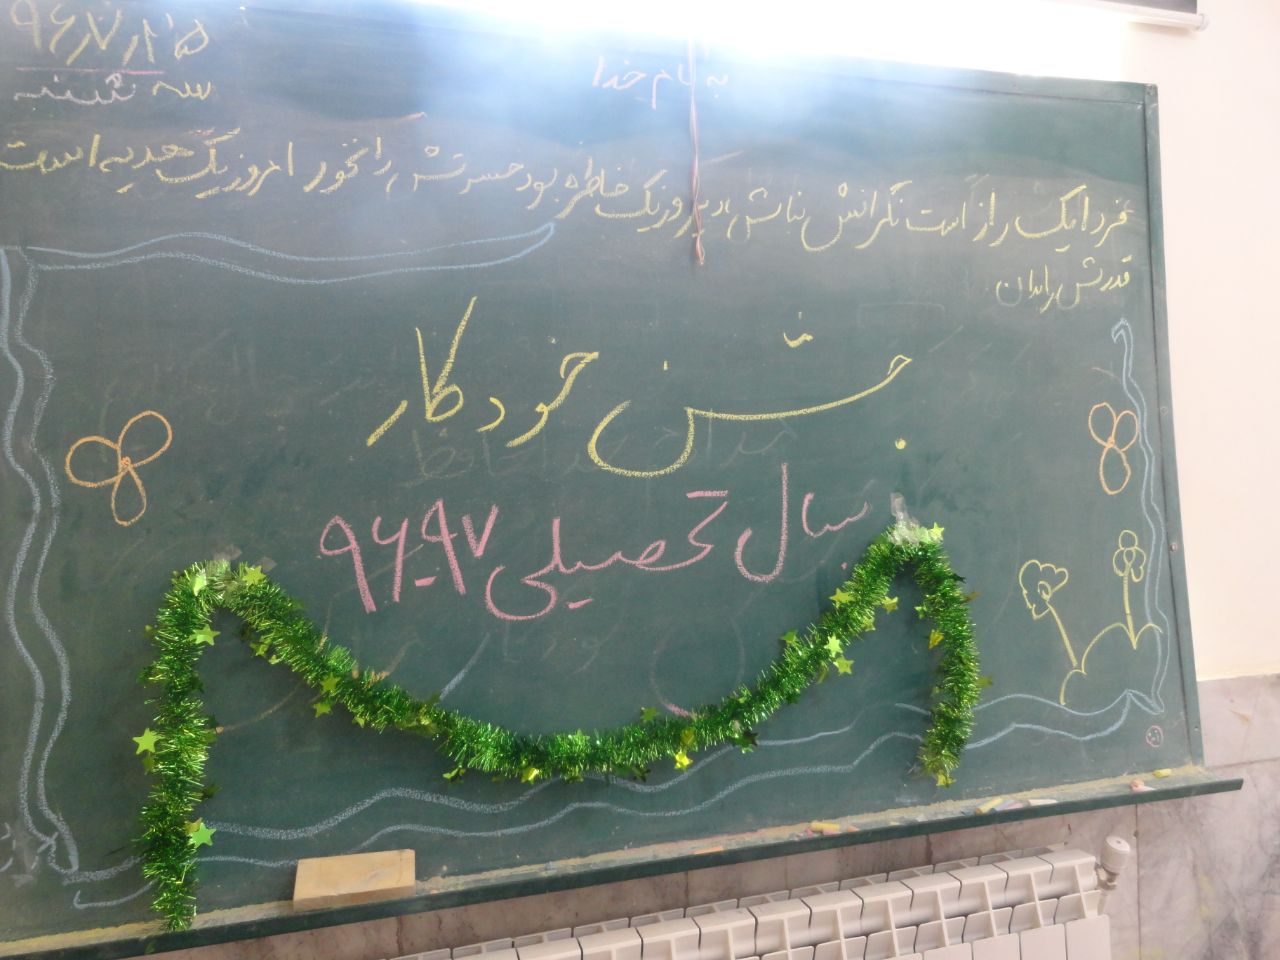 به نام خدا
۹۶/۷/۲۵
سه شنبه
فردا یک راز است نگرانش نباش دیروز یک خاطره بود حسرتش را نخور امروز یک هدیه است
قدرش را بدان
جشن خودکار
سال تحصیلی ۹۷-۹۶